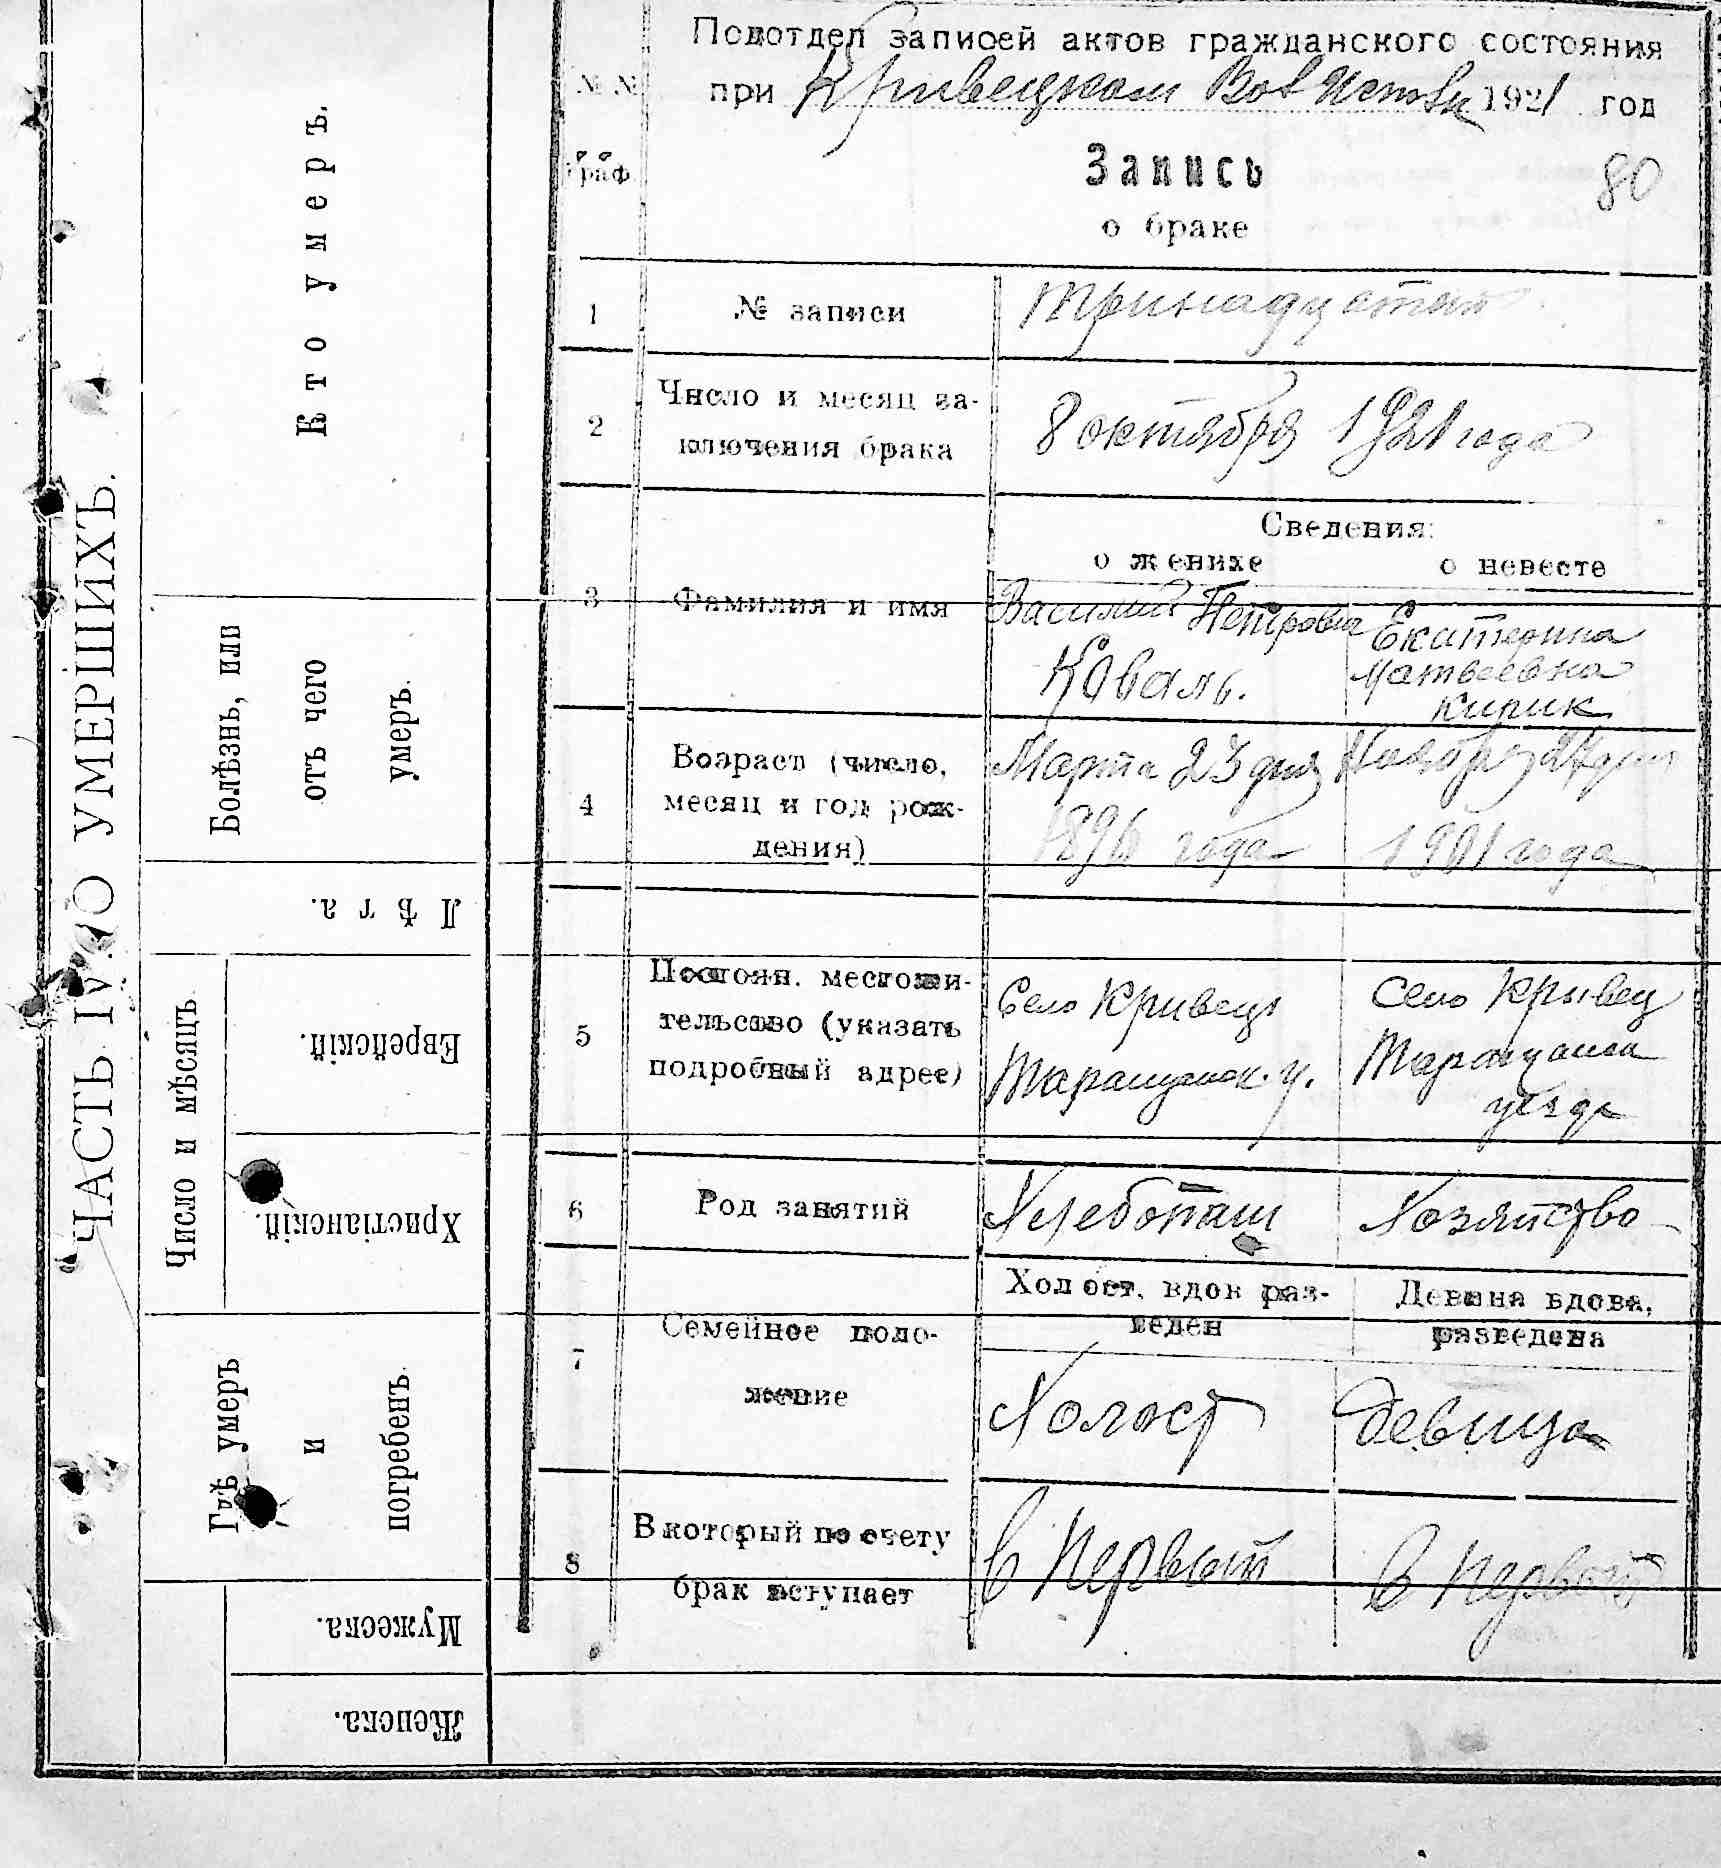 Подотдел записей актов гражданского состояния
при Кривецком 1921 год
№ №
граф.
Запись
о браке
80
1 № записи тринадцатый
2 Число и месяц за-
ключения брака
8 октября 1921 года
Сведения:
о женихе о невесте
3 Фамилия и имя
Василий Петрович
Коваль.
Екатерина
Матвеевна
Кирик
4 Возраст (число,
месяц и год рож-
дения)
Марта 23 дня
1896 года
Ноября дня
1901 года
5 Постоян. местожи-
тельство (указать
подробный адрес)
Село Кривец
Таращанск. у.
Село Крывец
Таращанск
уезда
6 Род занятий Хлебопаш Хозяйство
7 Семейное поло-
жение
Холост, вдов раз-
веден
Девица вдова,
разведена
Холост
Девица
8 В который по счету
брак вступает
в Первый
в Первый
ЧАСТЬ IV. О УМЕРШИХЪ.
Кто умеръ.
Болѣзнь, или
отъ чего
умеръ.
Лѣта.
Число и мѣсяцъ
Еврейскій.
Христіанскій.
Гдѣ умеръ
и
погребенъ
Мужеска.
Женска.